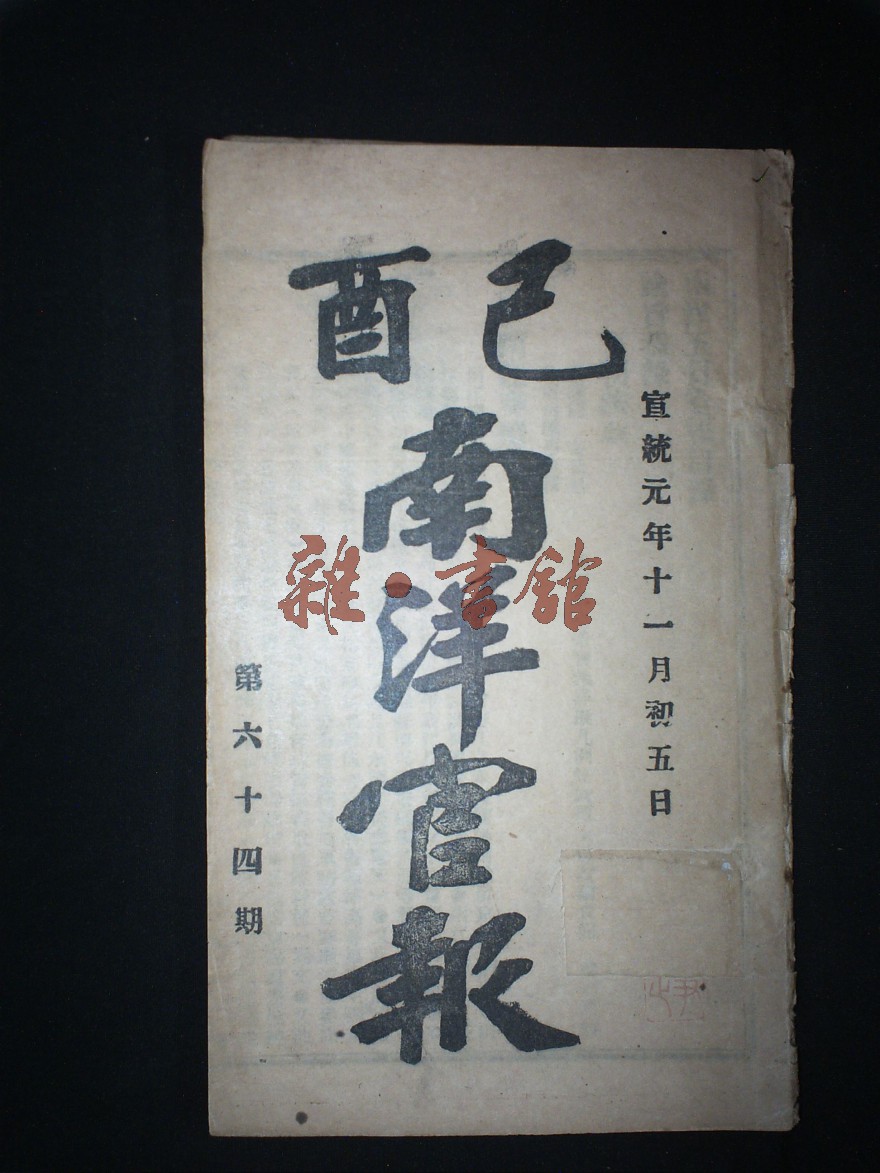 己酉
宣統元年十一月初五日
南洋官報
第六十四期
雜·書館